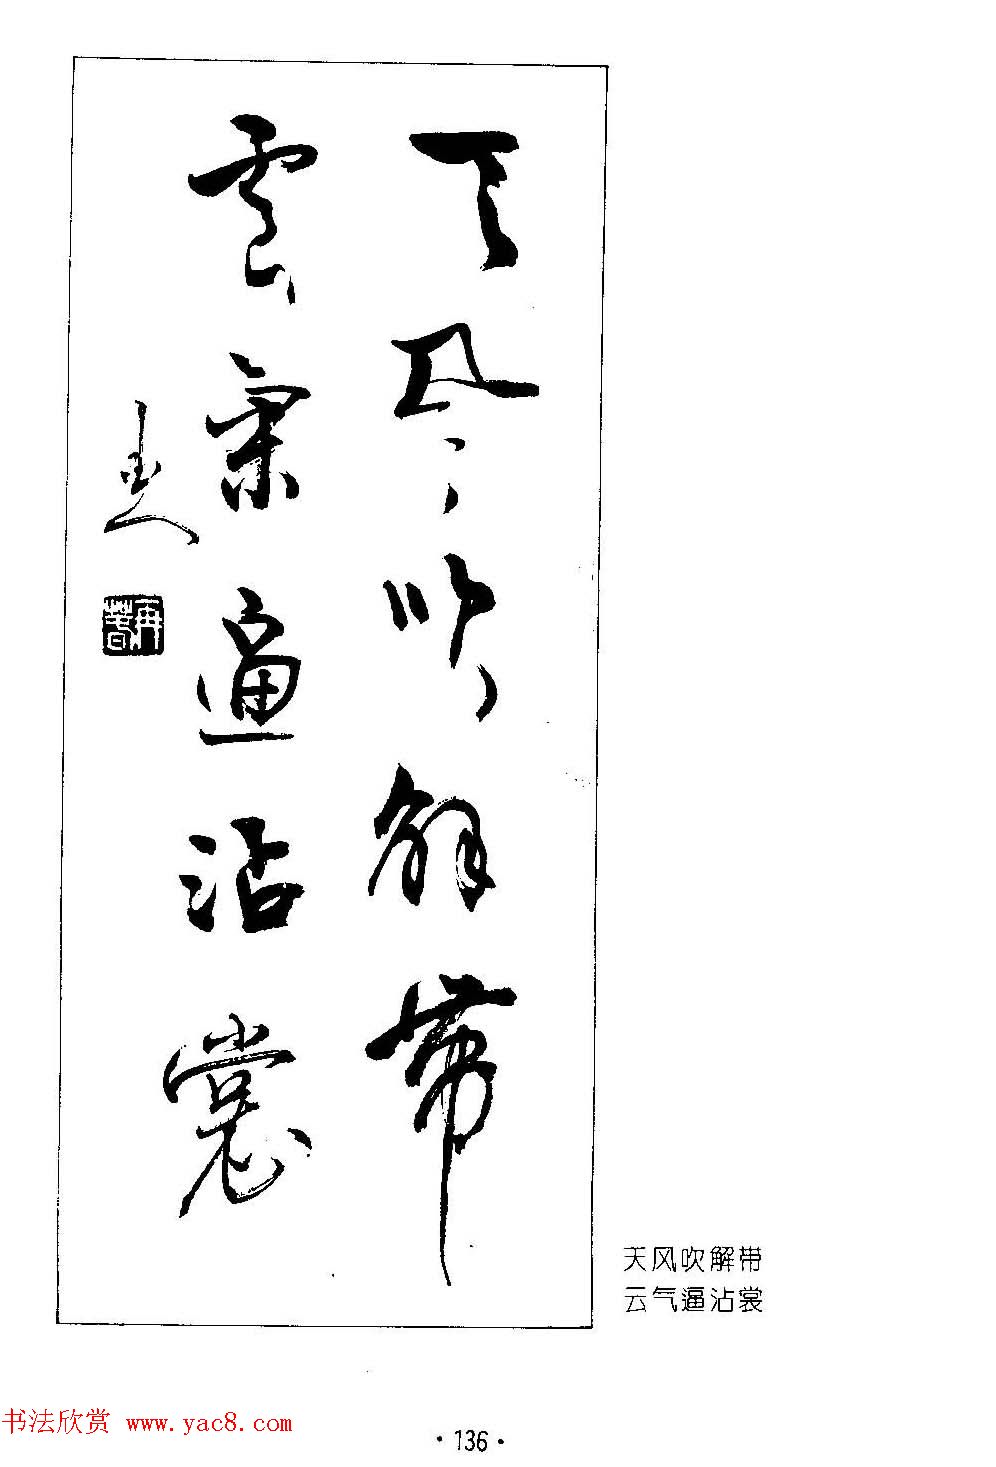 天風吹解帶
雲氣逼沾裳
再春
天风吹解带
云气逼沾裳
书法欣赏 www.yac8.com
·136·